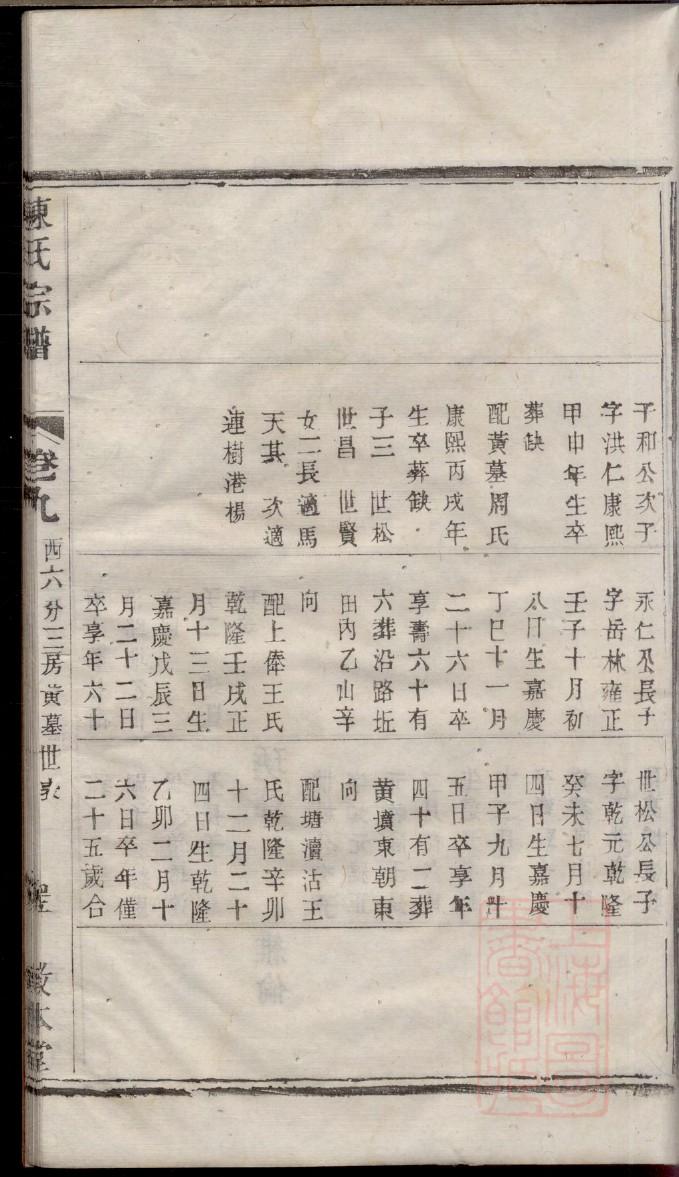 子和公次子
字洪仁康熙
甲申年生卒
葬缺
配黃墓周氏
康熙丙戌年
生卒葬缺
子三 世松
世昌 世賢
女二長適馬
天其 次適
連樹港楊
永仁公長子
字岳林雍正
壬子十月初
八日生嘉慶
丁巳十一月
二十六日卒
享壽六十有
六葬沿路坵
田內乙山辛
向
配上俸王氏
乾隆壬戌正
月十三日生
嘉慶戊辰三
月二十二日
卒享年六十
世松公長子
字乾元乾隆
癸未七月十
四日生嘉慶
甲子九月卄
五日卒享年
四十有二葬
黃墳東朝東
向
配塘瀆沽王
氏乾隆辛卯
十二月二十
四日生乾隆
乙卯二月十
六日卒年僅
二十五歲合
陳氏宗譜
卷九
西六分三房黃墓世表
敦本堂
上海圖書館藏